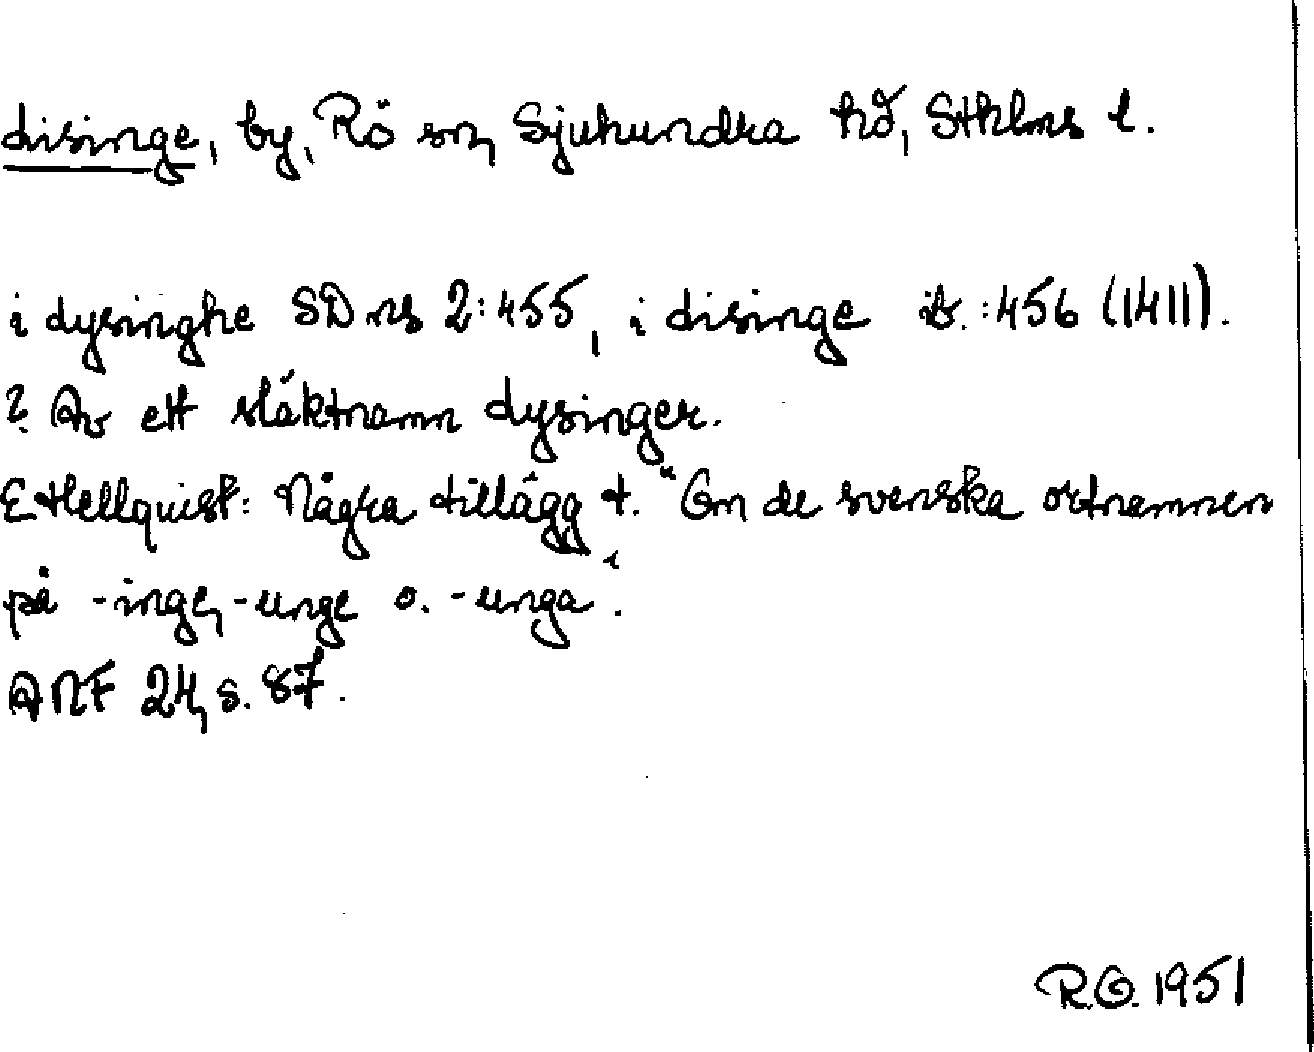 disinge, by, Rö sn, Sjuhundra hd, Sthlms l.
i dysinghe SD ns 2:455, i disinge ib. :456 (1411).
? Av ett släktnamn dysinger.
E Hellquist: Några tillägg t. "Om de svenska ortnamnen
på -inge, -unge o. -unga".
ANF 24, s. 87.
R.O. 1951